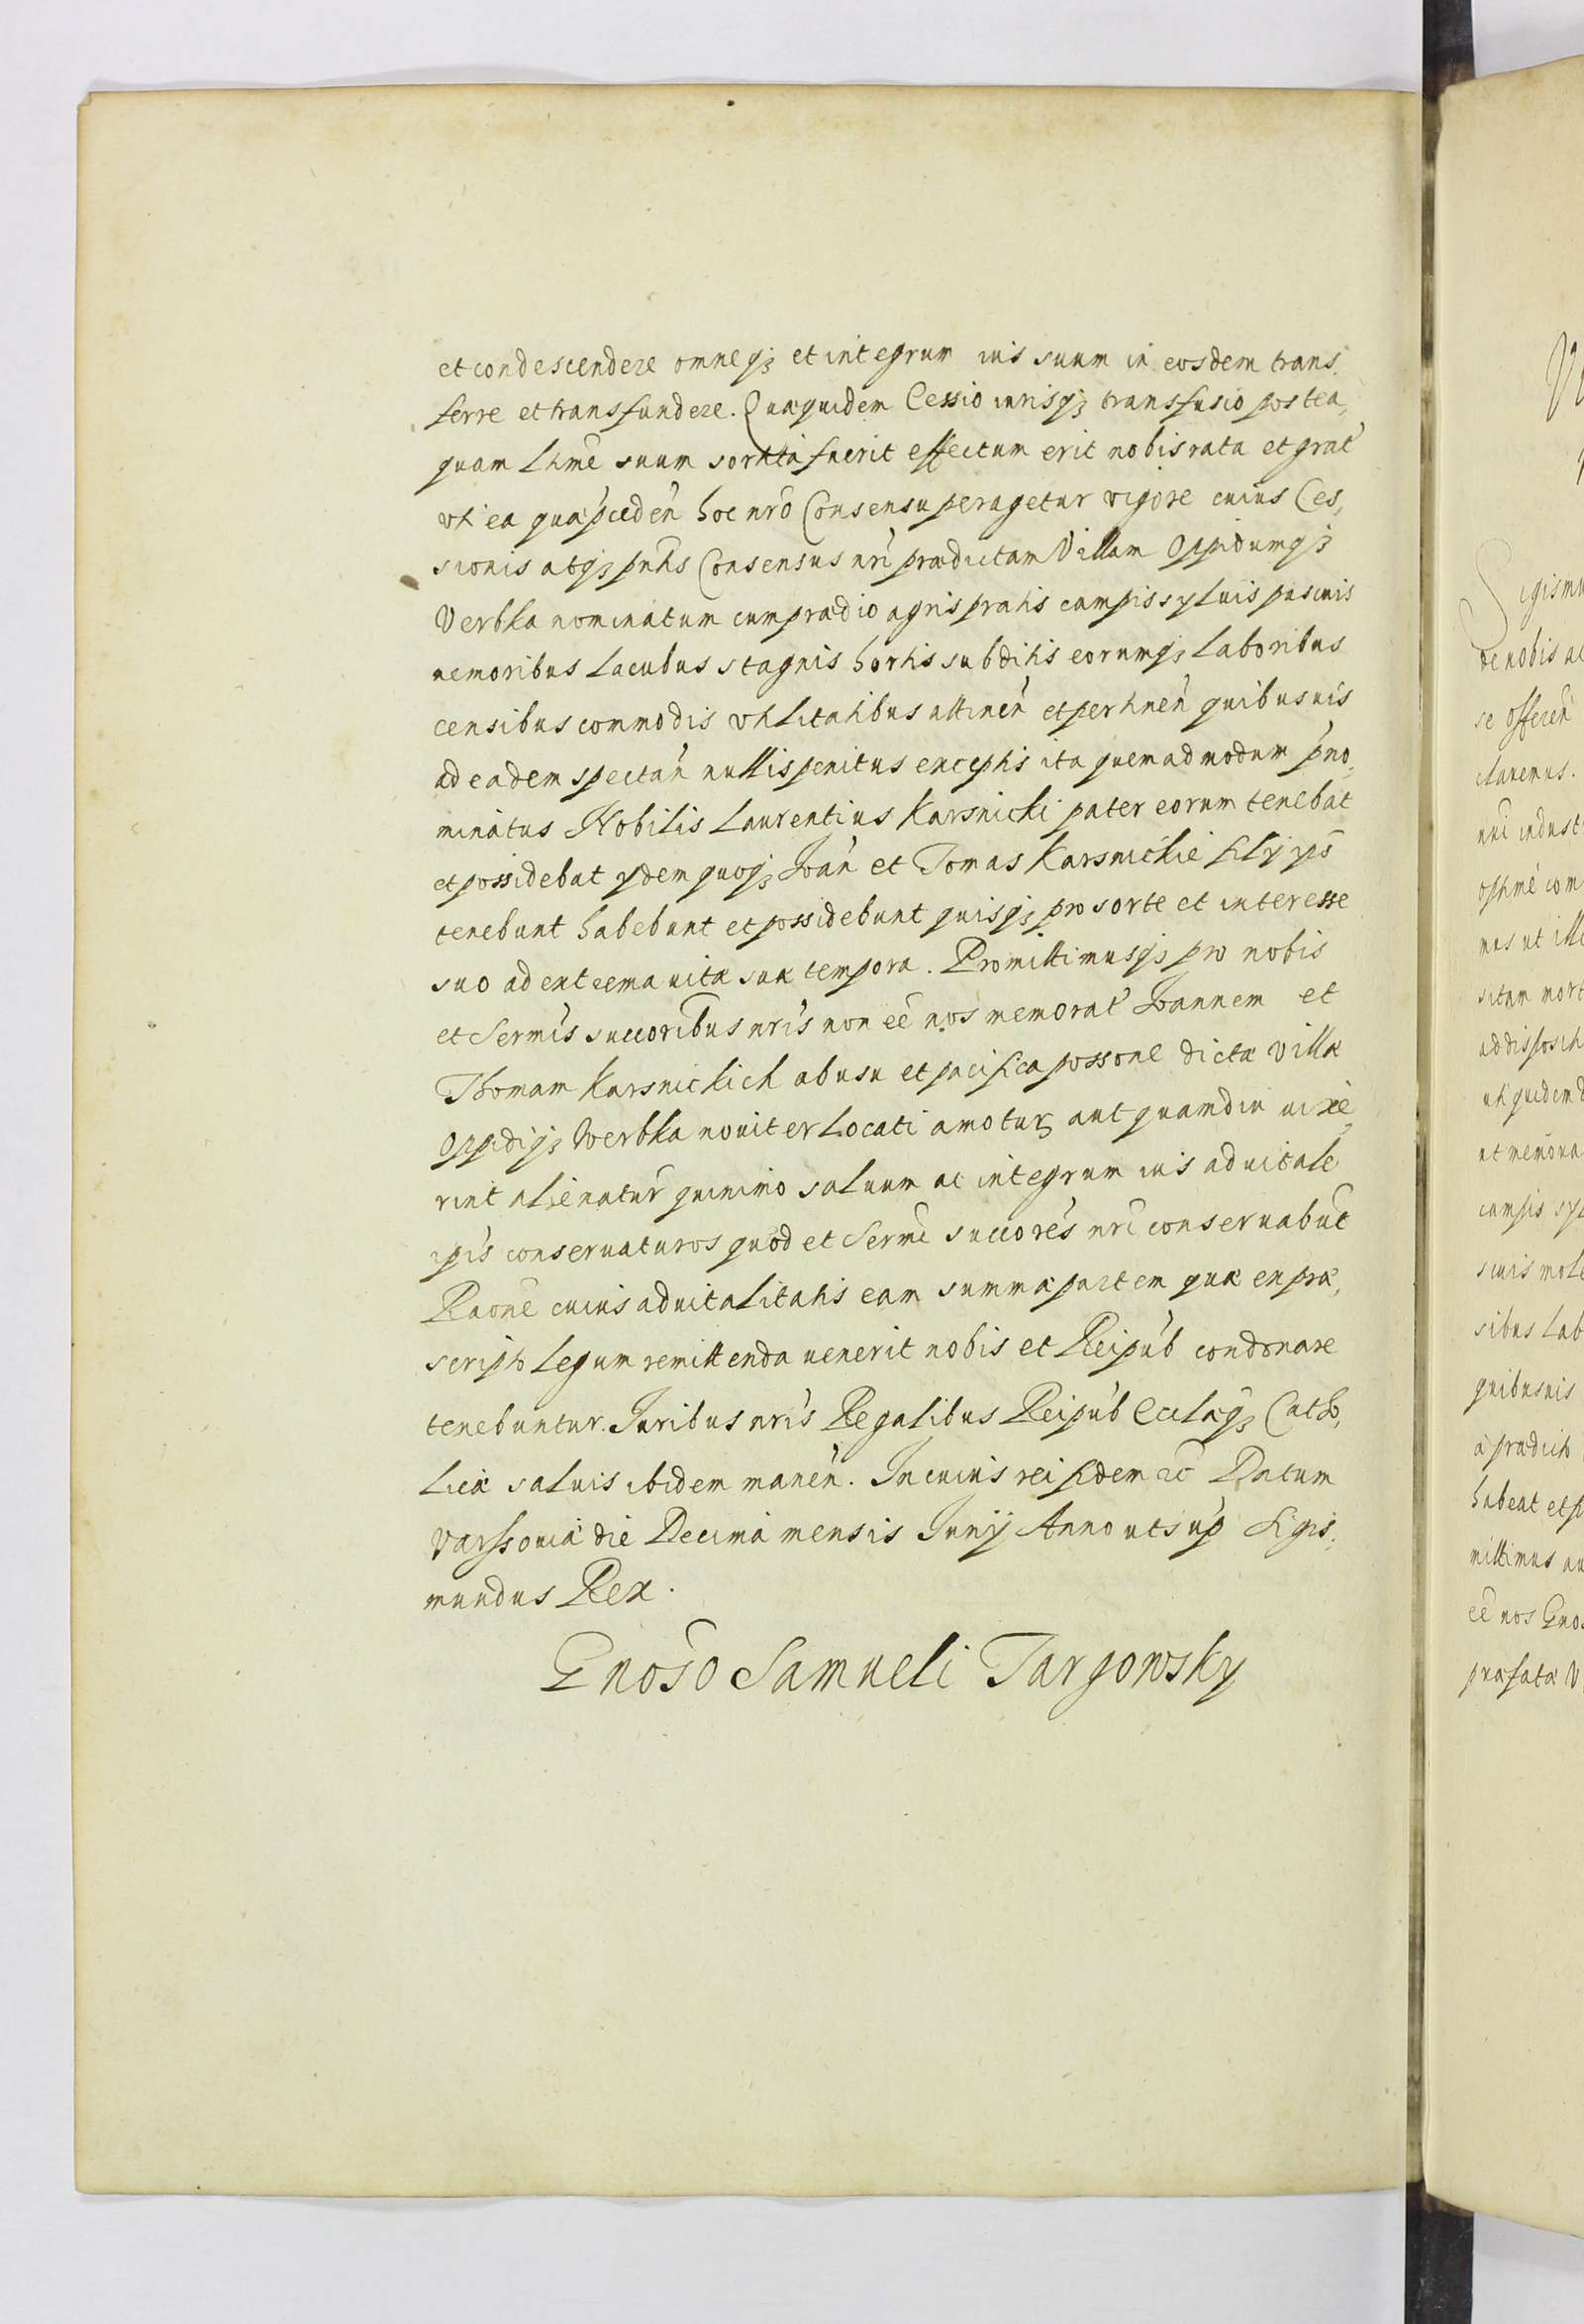 et condescendere omneqʒ et integrum ius suum in eosdem trans,
ferre et transfundere. Quæquidem Cessio iurisqʒ transfusio postea,
quam Lhmē suum sortita fuerit effectum erit nobis rata et grat
vti ea quæ pceden hoc nrō Consensu peragetur vigore cuius Ces,
sionis atqʒ pntis Consensus nri prædictam Villam Oppidumqʒ
Verbka nominatum cum prædio agris pratis campis syluis pascuis
nemoribus Lacubus stagnis hortis subditis eorumqʒ Laboribus
censibus commodis vtilitatibus attinen et pertinen quibusuis
ad eadem spectan nullis penitus exceptis ita quemadmodum pno,
minatus Nobilis Laurentius Karsnicki pater eorum tenebat
et possidebat ydem quoqʒ Joan et Tomas Karsnickie filij ips
tenebunt habebunt et possidebunt quisqʒ pro sorte et interesse
suo ad extrema vitæ suæ tempora. Promittimusqʒ pro nobis
et Sermis succoribus nris non eē nos memorat Joannem et
Thomam Karsnickich ab usu et pacifica possone dictæ villæ
oppidiqʒ Werbka nouiter Locati amotur aut quamdiu uixe,
rint alienatur quinimo saluum ac integrum ius aduitale
ipis conseruaturos quod et Sermi succores nri conseruabut
Raone cuius aduitalitatis eam summæ partem quæ ex præ,
scripto Legum remittenda uenerit nobis et Reipub condonare
tenebuntur. Juribus nris Regalibus Reipub Ecclæqʒ Catho,
licæ saluis ibidem manen. In cuius rei fidem ec Datum
Varssouiæ die Decima mensis Junij Anno ut sup Sigis,
mundus Rex.
Gnoso Samueli Targowsky
V
Sigismu
de nobis
se offeren
claremus.
nri indust
optime com
mus ut ille
sitam mort
ad disposih
uti quidem d
campis syl
scuis mole
sibus Lab
quibusuis
a prædicto
habeat et p
mittimus au
eē nos Gnos
præfatæ V